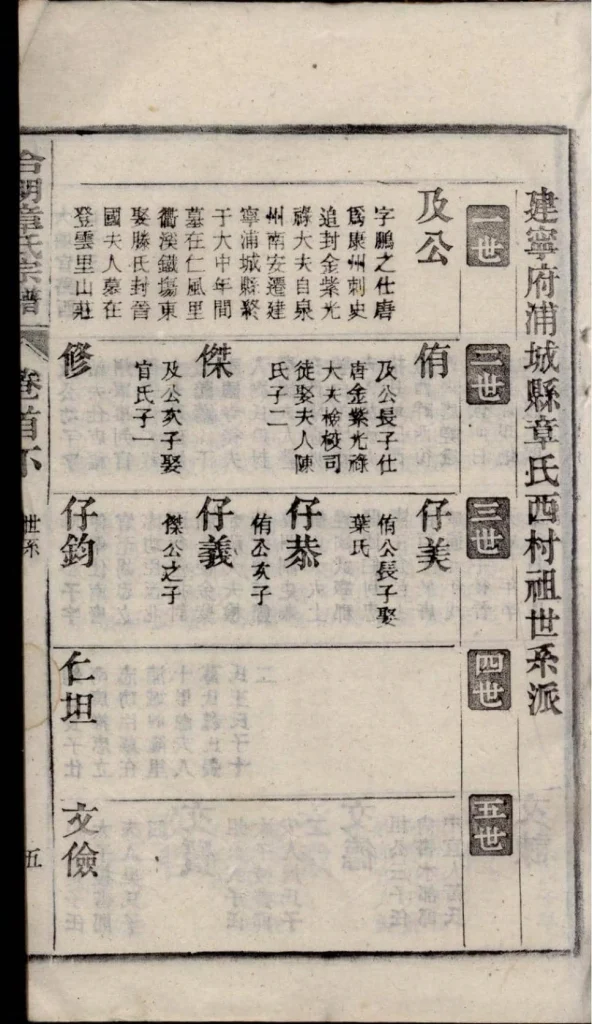 建寧府浦城縣章氏西村祖世系派
一世
及公
字鵬之仕唐
爲康州刺史
追封金紫光
祿大夫自泉
州南安遷建
寧浦城縣終
于大中年間
墓在仁風里
衢溪鐵塲東
娶滕氏封晉
國夫人墓在
登雲里山莊
二世
侑
及公長子仕
唐金紫光祿
大夫檢校司
徒娶夫人陳
氏子二
傑
及公次子娶
官氏子一
修
三世
仔美
侑公長子娶
葉氏
仔恭
侑公次子
仔義
傑公之子
仔鈞
四世
仁坦
五世
文儉
合湖章氏宗譜
卷首下
世系
五